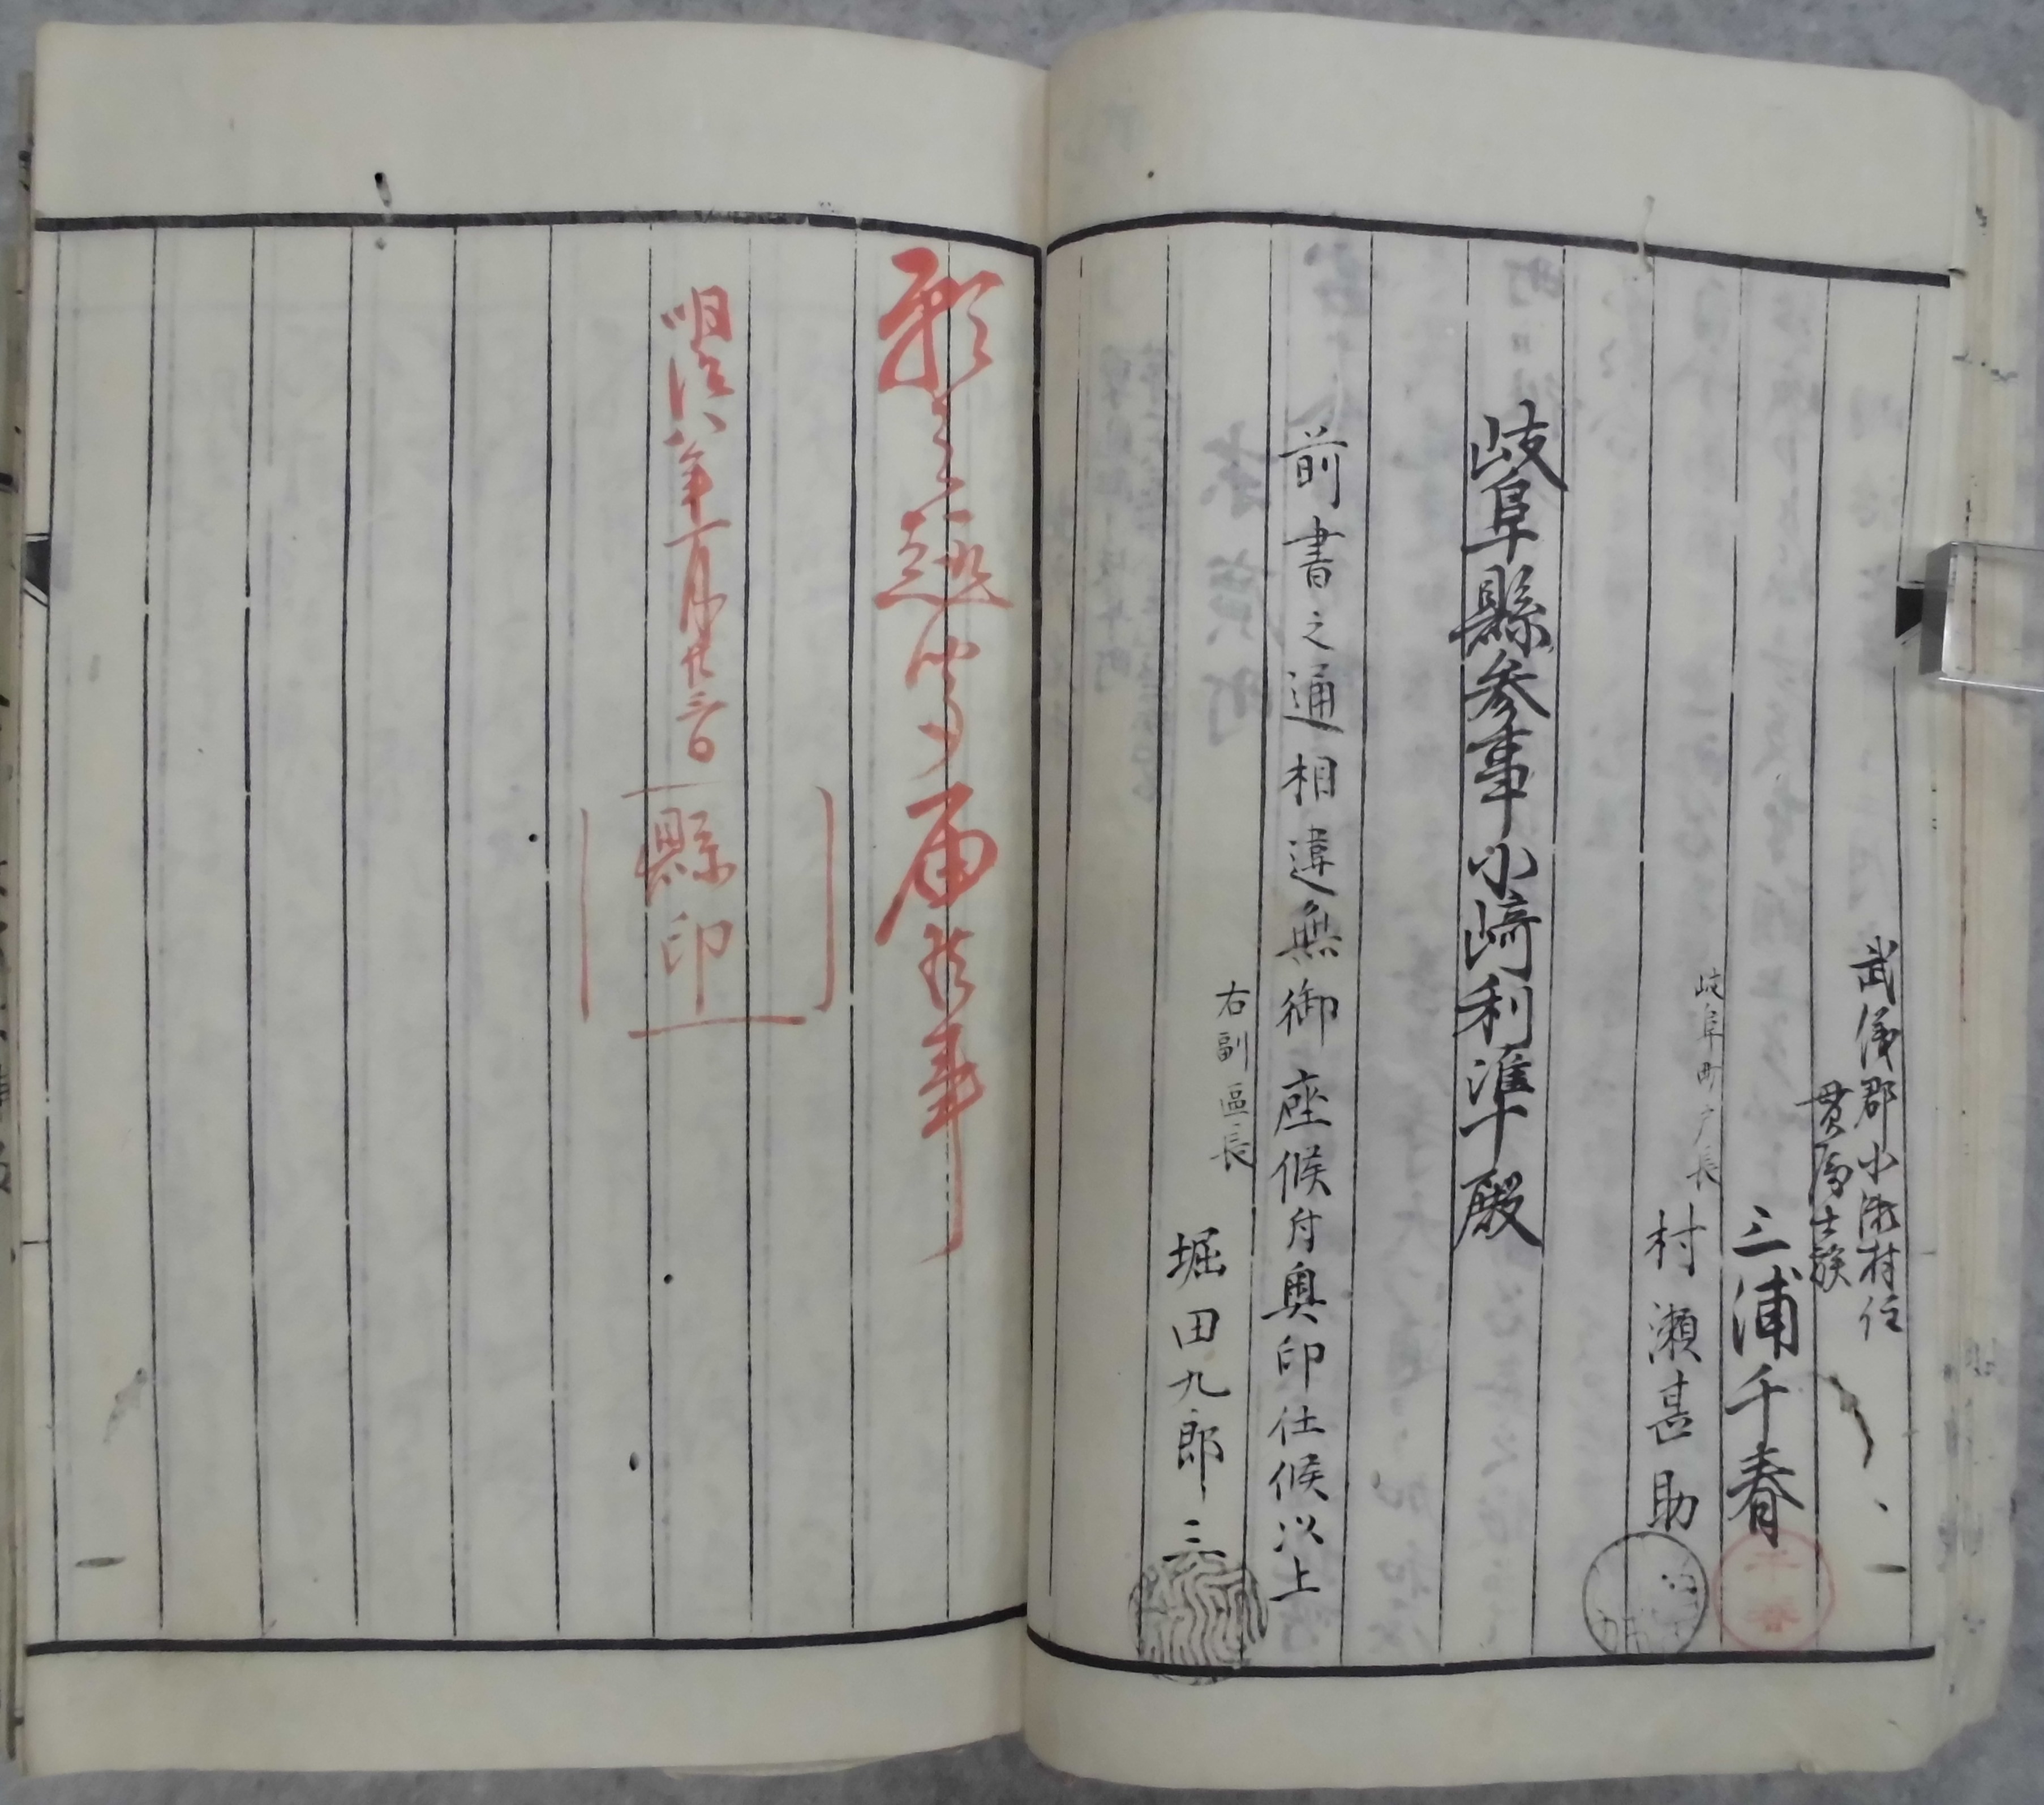 武儀郡小瀬村住
貫属士族
三浦千春
千春
岐阜町戸長
村瀬甚助
岐阜縣参事小崎利準殿
前書之通相違無御座候付奥印仕候以上
右副區長
堀田九郎三
願之趣聞届候事
明治八年一月廿三日
縣印